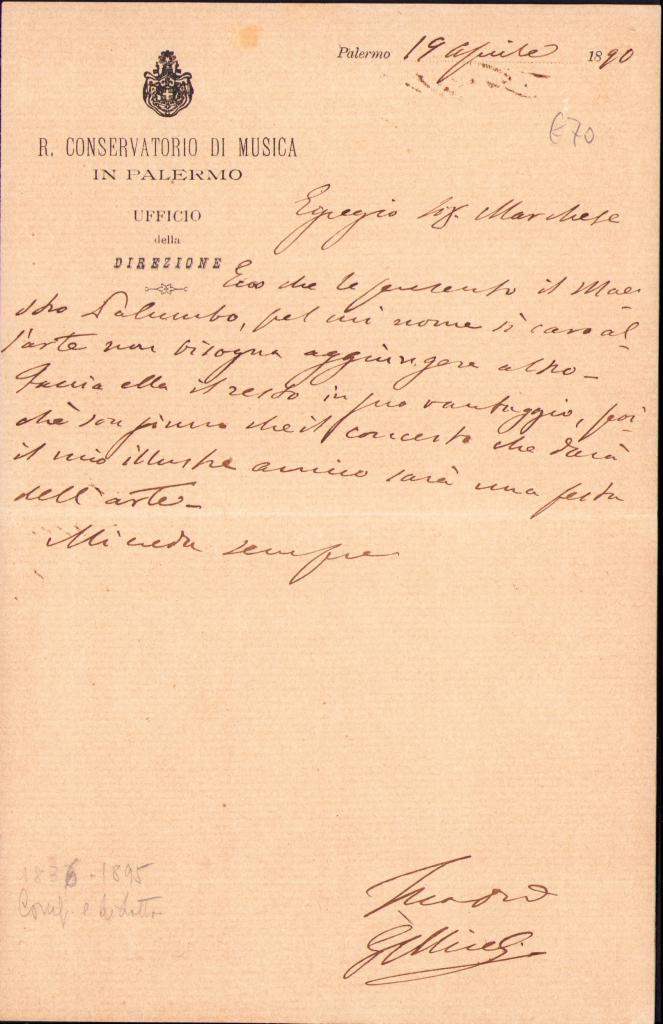 Palermo 19 aprile 1890
£70
R. CONSERVATORIO DI MUSICA
IN PALERMO
UFFICIO
della
DIREZIONE
Egregio Sig. Marchese
Ecco che le presento il Mae-
stro Palumbo, pel cui nome sì caro al-
l'arte non bisogna aggiungere altro_
Faccia ella il resto in suo vantaggio, poi-
chè son sicuro che il concerto che darà
il mio illustre amico sarà una festa
dell'arte_
Mi creda sempre
1836-1895
Comp. e